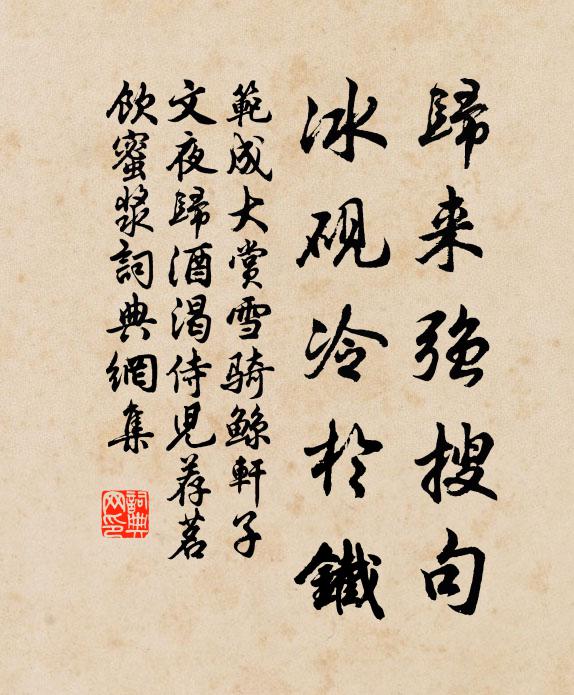 歸来強搜句
冰硯冷於鐵
範成大賞雪騎鲸軒子
文夜歸酒渴侍児荐茗
飲蜜漿詞典網集
詞典网印